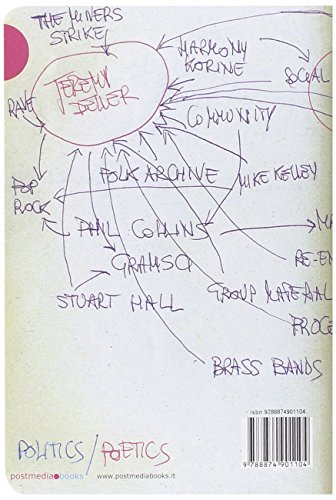 THE MINERS
STRIKE
HARMONY
KORINE
SOCIAL
JEREMY
DELLER
RAVE
COMMUNITY
FOLK ARCHIVE
MIKE KELLEY
POP
ROCK
PHIL COLLINS
MA
GRAMSCI
RE-EN
STUART HALL
GROUP MATERIAL
PROCE
BRASS BANDS
isbn 9788874901104
POLITICS / POETICS
9 788874 901104
postmedia books
www.postmediabooks.it